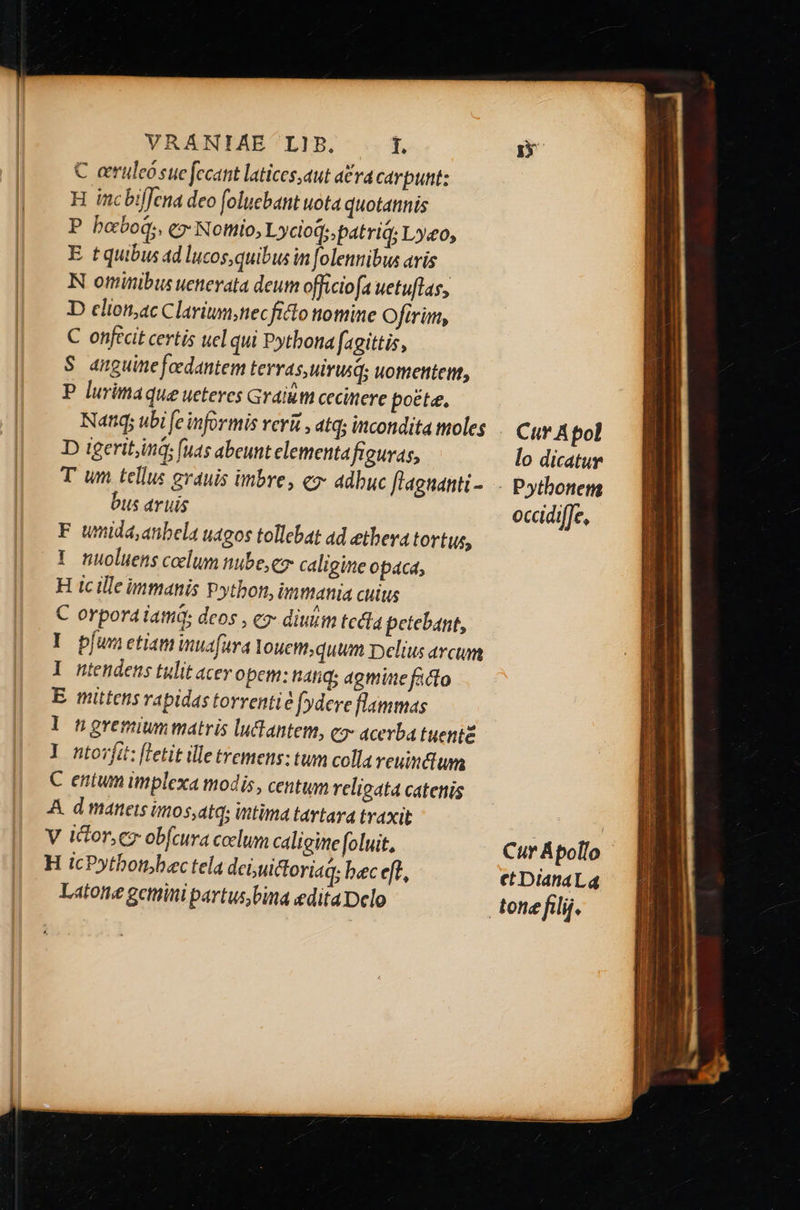 VRANIAE LIB. I. 15
C œruleó sue ſecant latices, aut aëra carpunt:
H inc biſſena deo ſoluebant uota quotannis
P hœboq;, & Nomio, Lycioq;, patriq; Lyæo,
E t quibus ad lucos, quibus in ſolennibus aris
N ominibus uenerata deum officioſa uetuſtas,
D elion, ac Clarium, nec ficto nomine Oſirim,
C onfecit certis uel qui Pythona ſagittis,
S anguine fœdantem terras, uirusq; uomentem,
P lurima que ueteres Graiûm cecinere poëtæ.
Nanq; ubi ſe informis rerū, atq; incondita moles
Cur Apol
D igerit, inq; ſuas abeunt elementa figuras,
lo dicatur
T um tellus grauis imbre, & adhuc ſtagnanti-
Pythonem
bus aruis
occidiſſe,
F umida, anhela uagos tollebat ad æthera tortus,
I nuoluens cœlum nube, & caligine opaca,
H ic ille immanis Python, immania cuius
C orpora iamq; deos, & diuûm tecta petebant,
I pſum etiam inuaſura Iouem, quum Delius arcum
I ntendens tulit acer opem: nanq; agmine facto
E mittens rapidas torrenti è ſydere flammas
I n gremium matris luctantem, & acerba tuentē
I ntorſit: ſtetit ille tremens: tum colla reuinctum
C entum implexa modis, centum religata catenis
A d maneis imos, atq; intima tartara traxit
V ictor, & obſcura cœlum caligine ſoluit,
Cur Apollo
H ic Python, hæc tela dei, uictoriaq; hæc eſt,
et Diana La
Latonæ gemini partus, bina ædita Delo
tonæ filij.